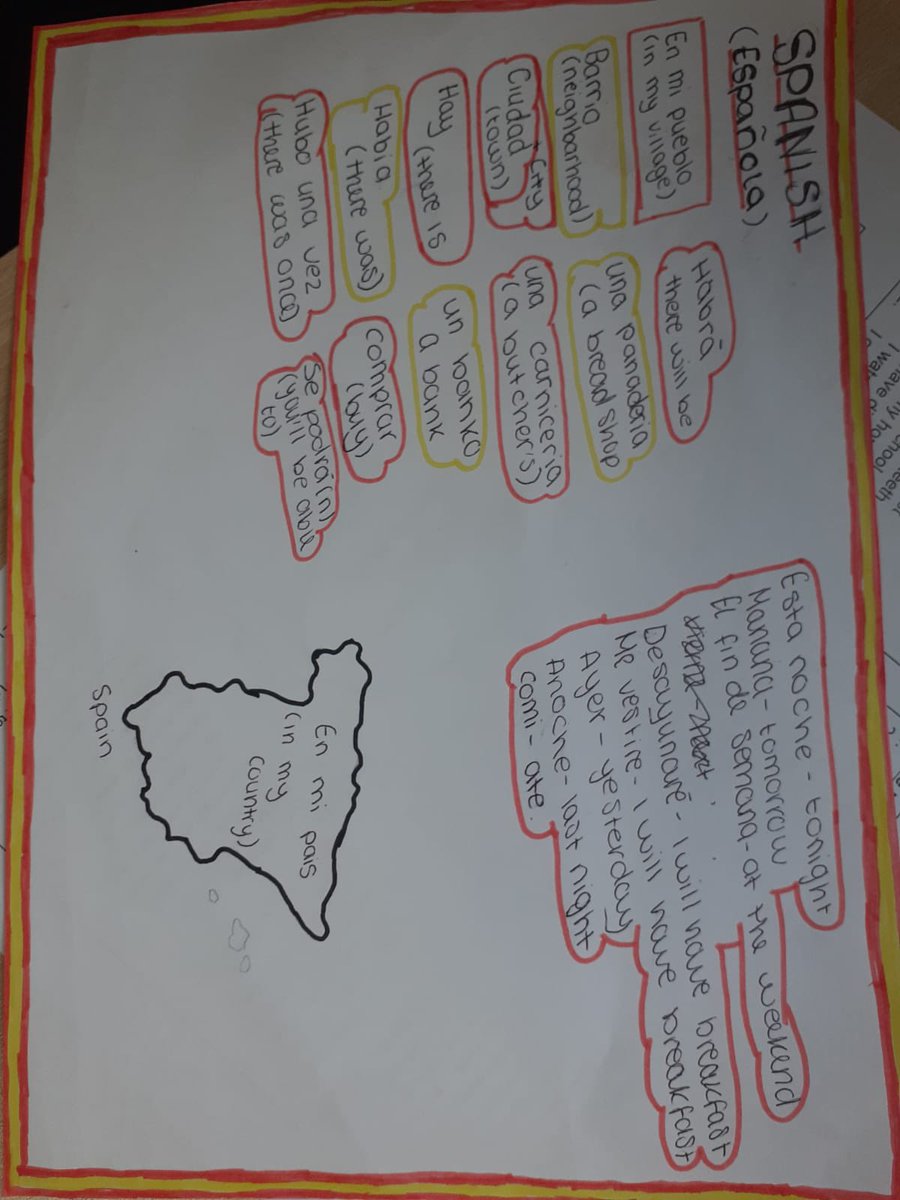 SPANISH
(Española)
En mi pueblo
(in my village)
Barrio
(neighborhood)
+ City
Ciudad
(town)
Hay (there is
Había
(there was)
Hubo una vez
(there was once)
Habrá
there will be
una panaderia
(a bread shop
una carniceria
(a butcher's)
un banko
a bank
comprar
(buy)
Se podrá(n)
(you'll be able
to)
Esta noche - tonight
Mañana - tomorrow
El fin de semana - at the weekend
Desayunaré - I will have breakfast
Me vestire - I will have breakfast
Ayer - yesterday)
Anoche - last night
comi - ate.
En mi pais
(in my
country)
Spain